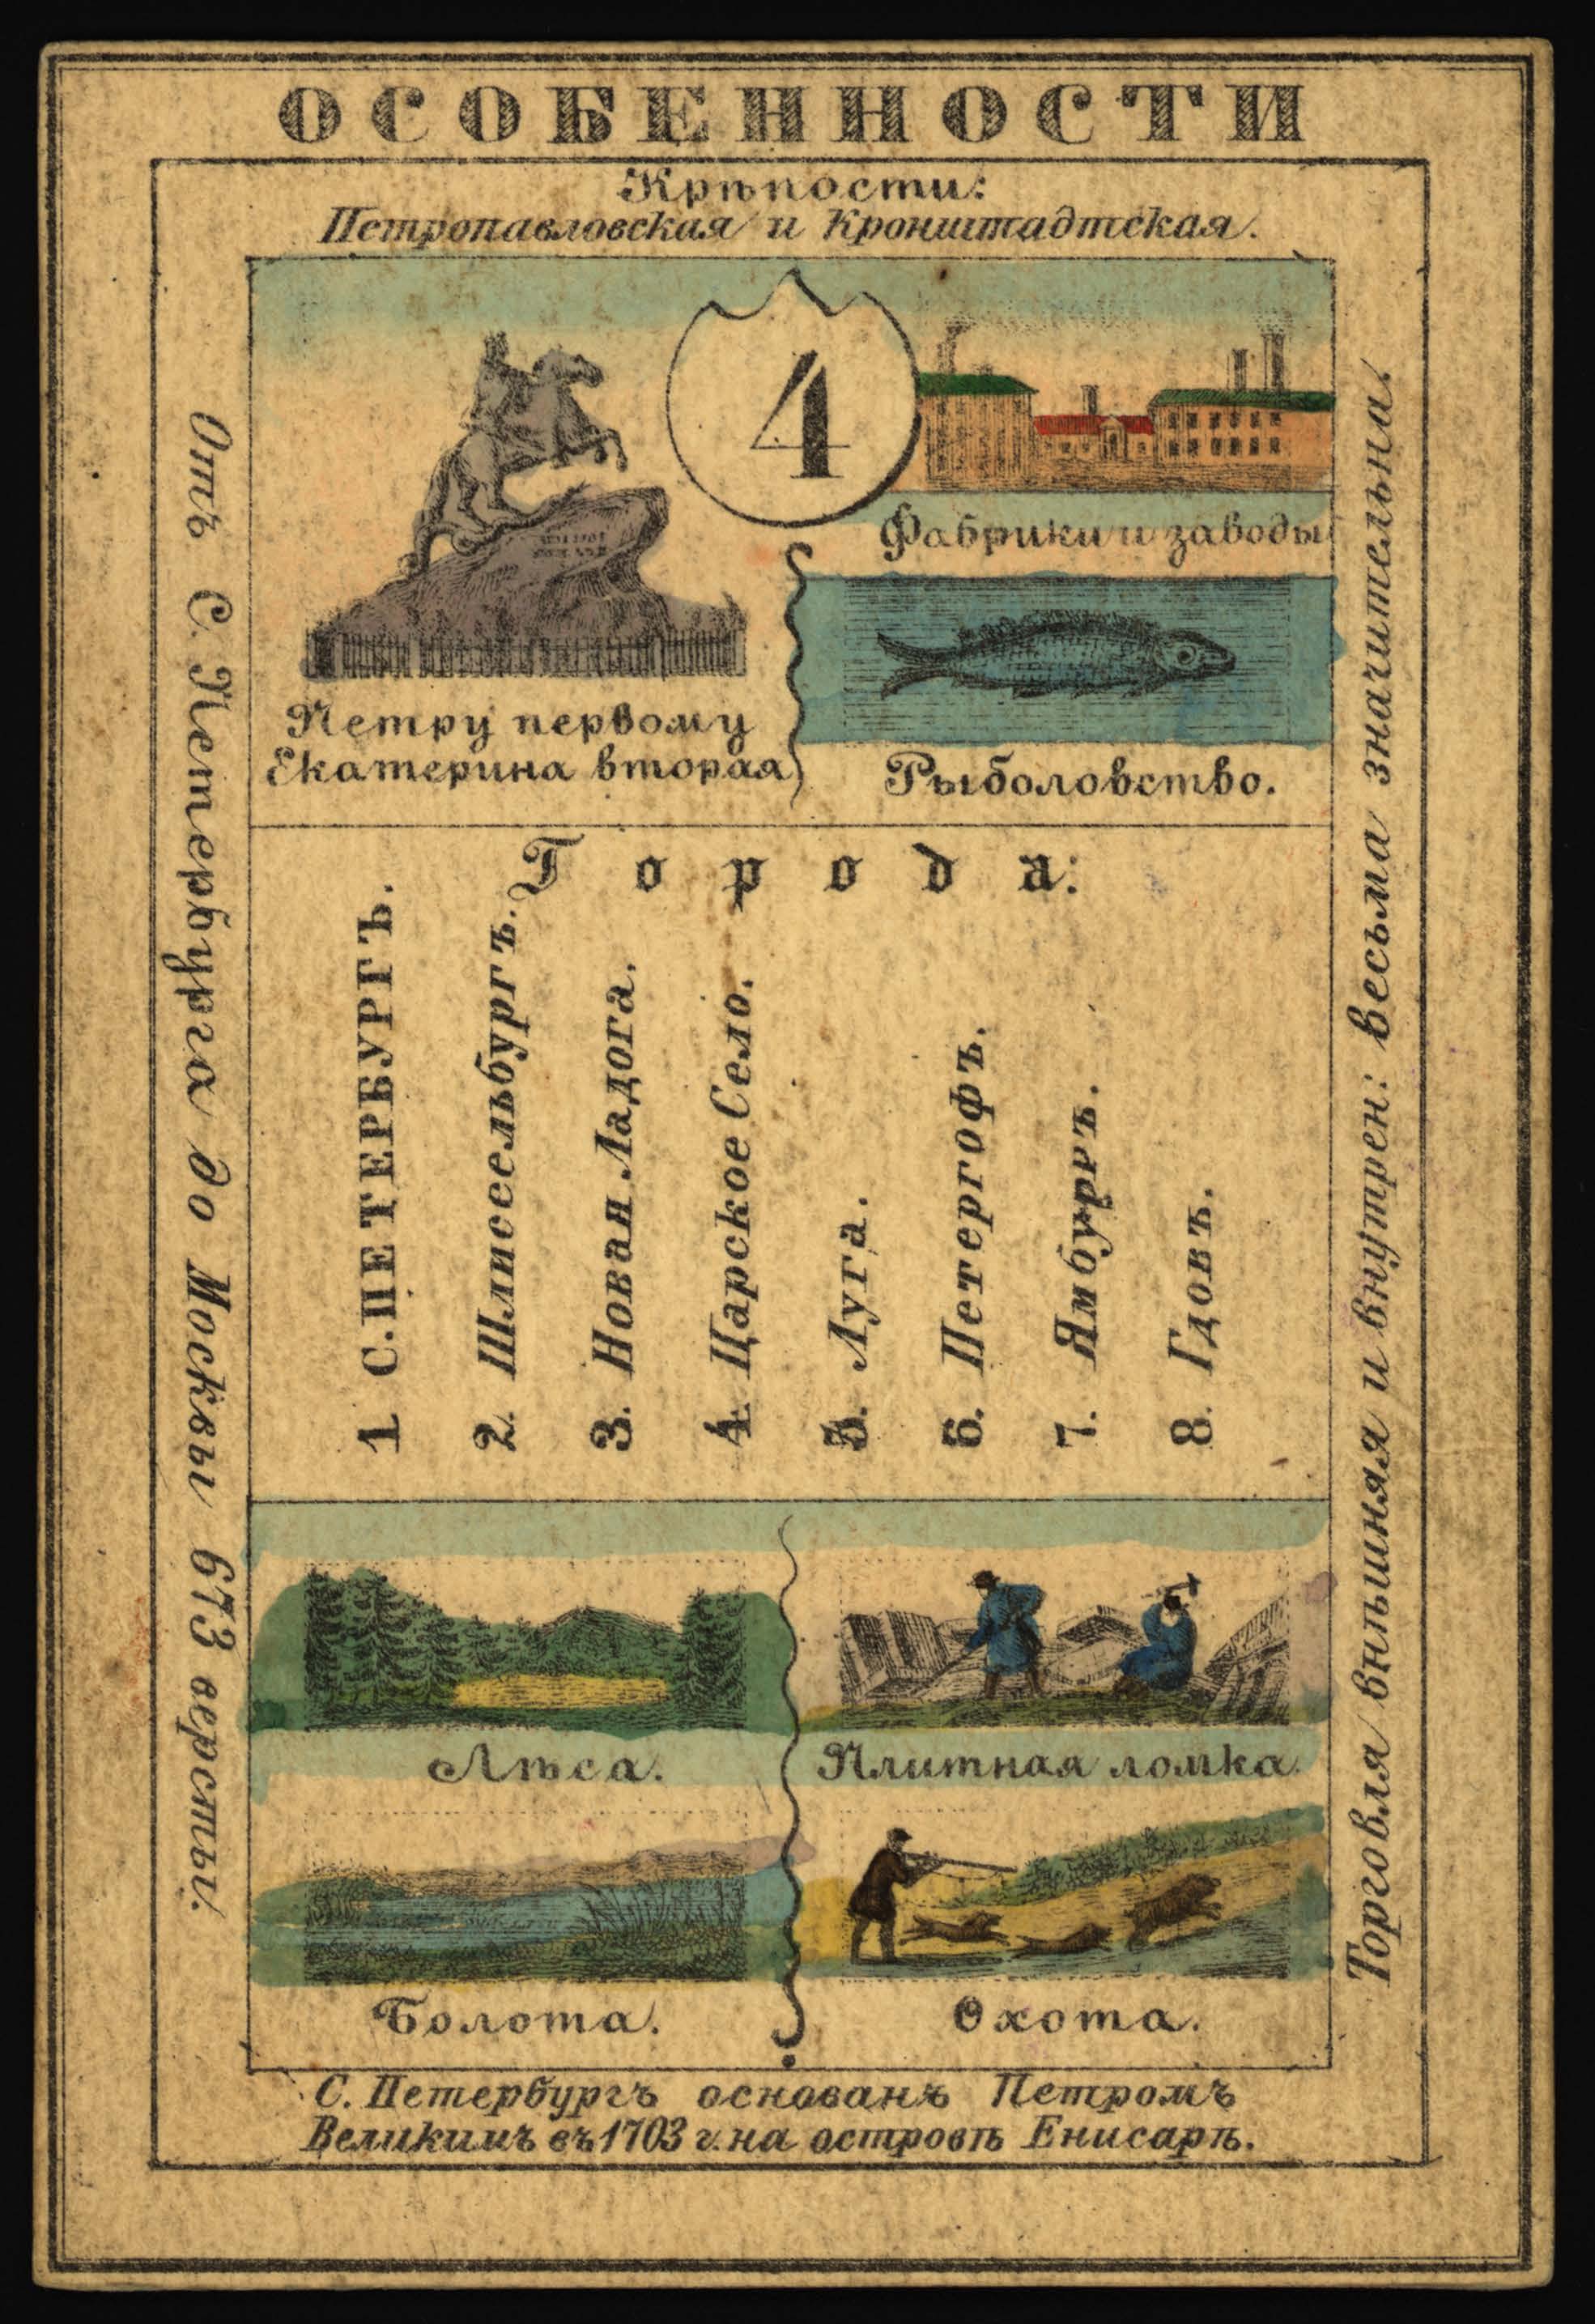 ОСОБЕННОСТИ
Крѣпости:
Петропавловская и Кронштадтская.
4
Фабрики и заводы
Петру первому
Екатерина вторая
Рыболовство.
Города:
1 С.ПЕТЕРБУРГЪ.
2. Шлиссельбургъ.
3. Новая Ладога.
4. Царское Село.
5. Луга.
6. Петергофъ.
7. Ямбургъ.
8. Гдовъ.
Лѣса.
Плитная ломка.
Болота.
Охота.
С. Петербургъ основанъ Петромъ
Великимъ въ 1703 г. на островѣ Енисарѣ.
Отъ С. Петербурга до Москвы 673 версты.
Торговля внѣшняя и внутрен: весьма значительна.